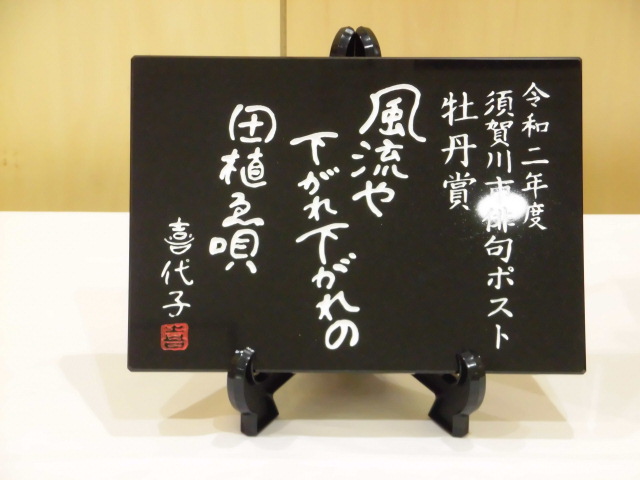 令和二年度
須賀川市俳句ポスト
牡丹賞
風流や
下がれ下がれの
田植ゑ唄
喜代子